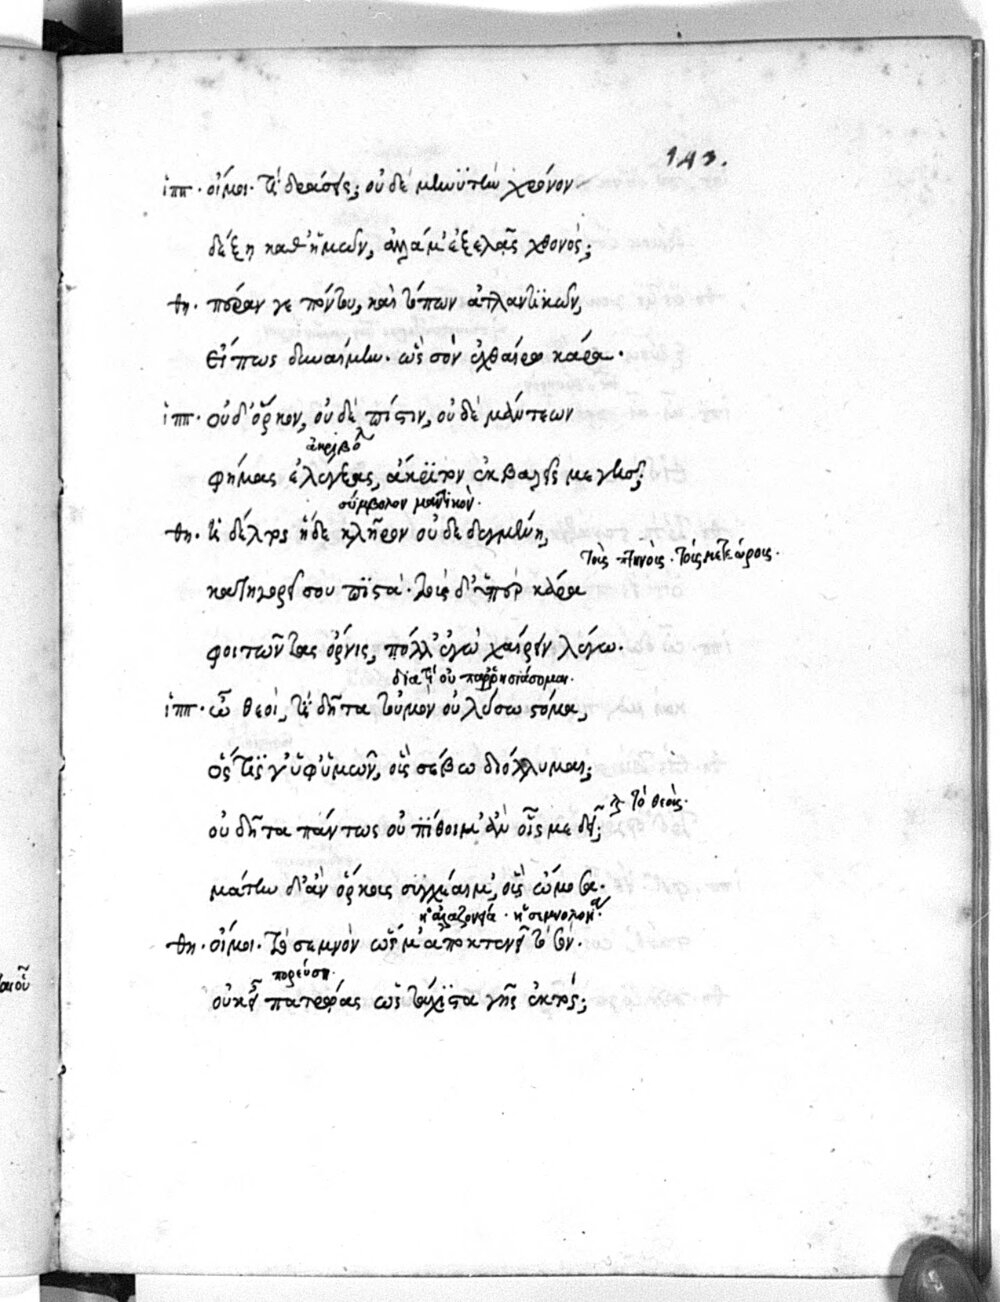 143.
ἱππ. οἴμοι. τί δράσεις; οὐδὲ μηνυτὴν χρόνον
δέξη καθ' ἡμῶν, ἀλλά μ' ἐξελᾶς χθονός;
θη. πέραν γε πόντου, καὶ τόπων ἀτλαντικῶν,
εἴ πως δυναίμην. ὡς σὸν ἐχθαίρω κάρα.
ἱππ. οὐδ' ὅρκον, οὐδὲ πίστιν, οὐδὲ μάντεων
φήμας ἐλέγξας, ἄκριτον ἐκβαλεῖς με γῆς;
σύμβολον μαντικὸν.
θη. ἡ δέλτος ἥδε κλῆρον οὐ δεδεγμένη,
τοῖς πτηνοῖς. τοῖς μετεώροις.
κατηγορεῖ σου πιστά. τοὺς δ' ὑπὲρ κάρα
φοιτῶντας ὄρνις, πόλλ' ἐγὼ χαίρειν λέγω.
διατί οὐ παρρησιάσομαι.
ἱππ. ὦ θεοὶ, τί δῆτα τοὐμὸν οὐ λύσω στόμα,
ὅστις γ' ὑφ' ὑμῶν, οὓς σέβω διόλλυμαι;
τοὺς θεοὺς.
οὐ δῆτα πάντως οὐ πίθοιμ' ἂν οὕς με δεῖ;
μάτην δ' ἂν ὅρκους συγχέαιμ', οὓς ὤμοσα.
θη. οἴμοι. τὸ σεμνὸν ὥς μ' ἀποκτενεῖ τὸ σόν.
πορεύση.
οὐκ εἶ πατρῴας ὡς τάχιστα γῆς ἐκτός;